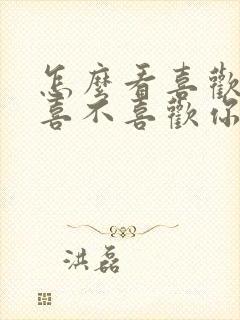 怎麼看喜歡
喜不喜歡你
洪磊